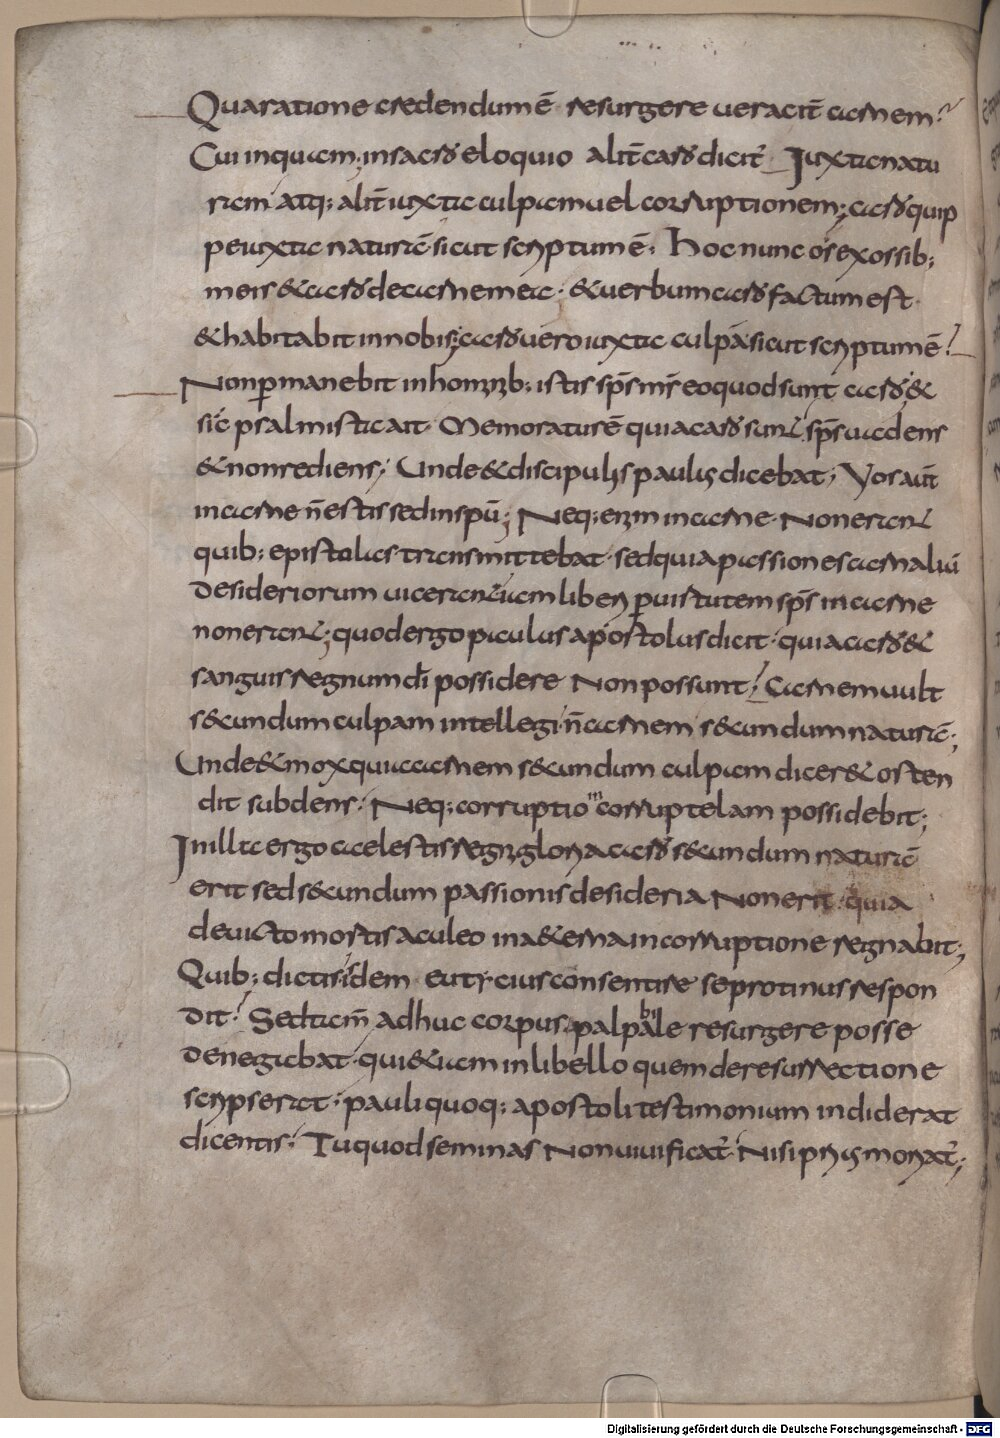 Quaratione credendum ē resurgere ueracit̄ carnem?
Cui inquam; in sacro eloquio alit̄ caro dicit̄ Iuxta natu
ram atq; alit̄ iuxta culpam uel corruptionem; caro quip
pe iuxta naturā sicut scriptum ē; Hoc nunc os ex ossib;
meis & caro de carne mea; & uerbum caro factum est
& habitabit in nobis; caro uero iuxta culpā sicut scriptum ē;
Non ꝑmanebit in hominib; istis sp̄s m̄s eo quod sunt caro; &
sic psalmista ait; Memoratus ē quia caro sunt sp̄s uadens
& non rediens; Unde & discipulis paulus dicebat; Vos aut̄
in carne n̄ estis sed in sp̄u; Neq; enim in carne non erant
quib; epistolas transmittebat sed quia passiones carnaliū
desideriorum uicerant iam liberi ꝑ uirtutem sp̄s in carne
non erant; quod ergo paulus apostolus dicit quia caro &
sanguis regnum dī possidere non possunt; Carnem uult
s&cundum culpam intellegi n̄ carnem s&cundum naturā;
Unde & mox quia carnem s&cundum culpam dicer& osten
dit subdens; Neq; corruptio incorruptelam possidebit;
In illa ergo caelestis regni gloria caro s&cundum naturā
erit sed s&cundum passionis desideria non erit quia
deuicto mortis aculeo in a&erna incorruptione regnabit;
Quib; dictis isdem eutycius consentire se protinus respon
dit; Sed tam̄ adhuc corpus palpabile resurgere posse
denegabat qui &iam in libello quem de resurrectione
scripserat; pauli quoq; apostoli testimonium indiderat
dicentis; Tu quod seminas non uiuificat̄ nisi prius moriat̄;
Digitalisierung gefördert durch die Deutsche Forschungsgemeinschaft - DFG